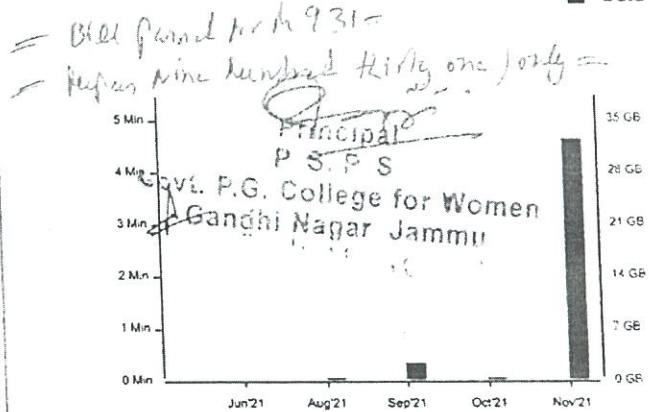 = Bill passed for Rs 931=
Rupees Nine hundred thirty one) only =
Principal
P S. P S
Govt. P.G. College for Women
Gandhi Nagar Jammu
5 Min
4 Min
3 Min
2 Min
1 Min
0 Min
35 GB
28 GB
21 GB
14 GB
7 GB
0 GB
Jun'21 Aug'21 Sep'21 Oct'21 Nov'21